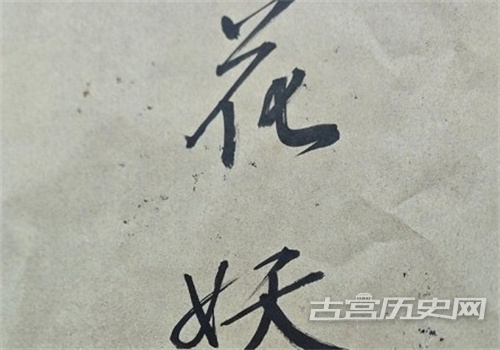 花
妖
古宫历史网